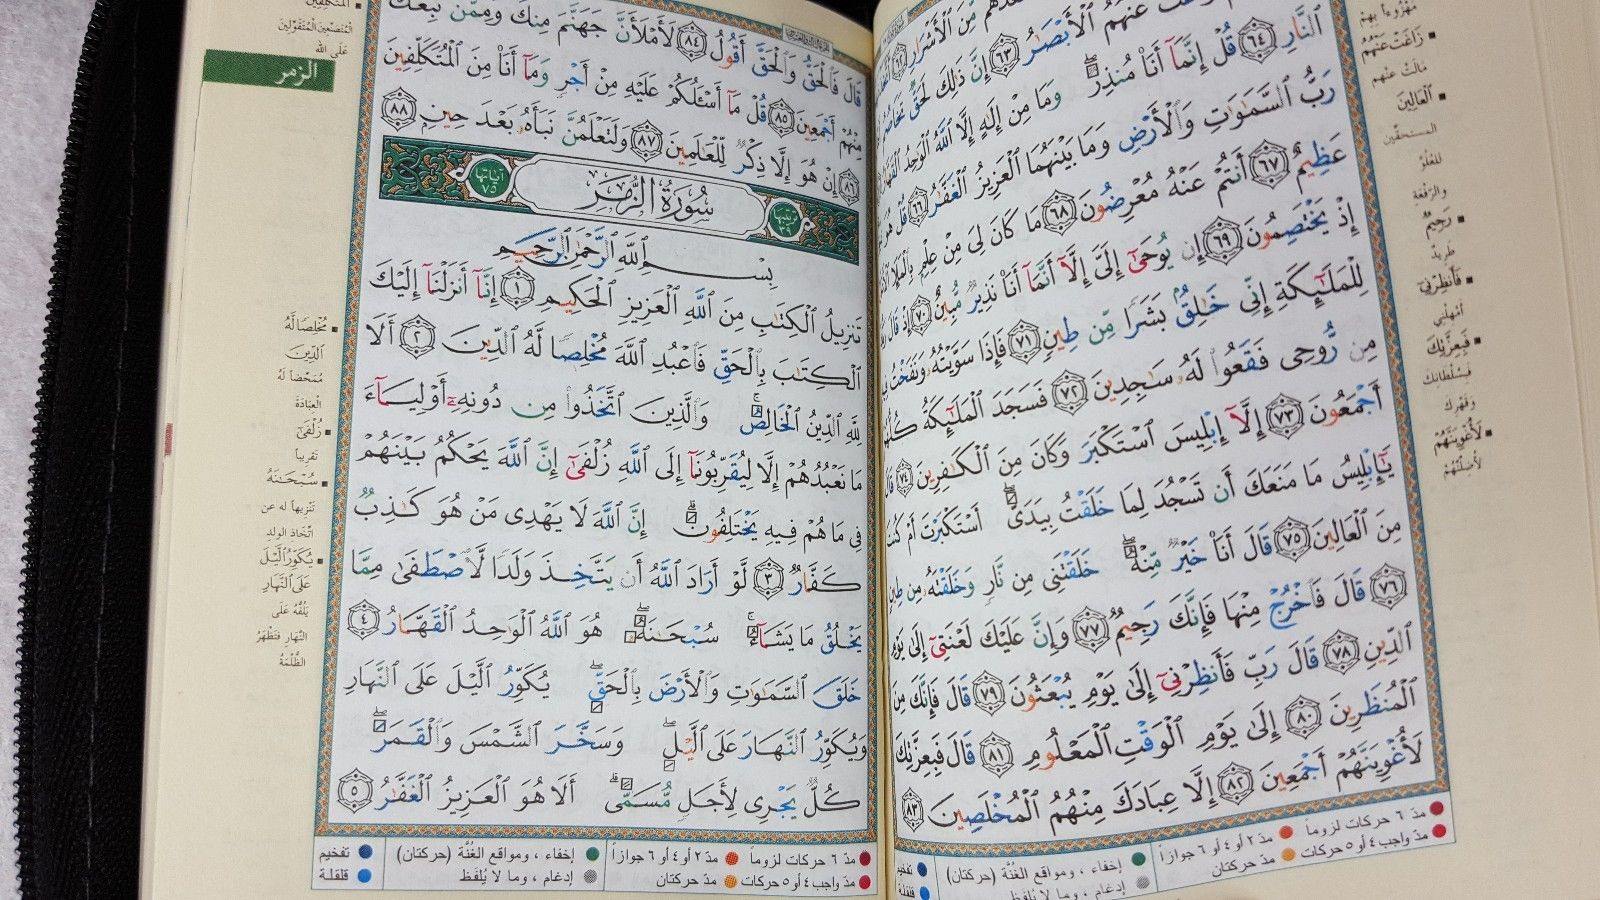 النَّارِ ٦٤ قُلْ إِنَّمَآ أَنَا۠ مُنذِرٌ وَمَا مِنْ إِلَٰهٍ إِلَّا ٱللَّهُ ٱلْوَٰحِدُ ٱلْقَهَّارُ
رَبُّ ٱلسَّمَٰوَٰتِ وَٱلْأَرْضِ وَمَا بَيْنَهُمَا ٱلْعَزِيزُ ٱلْغَفَّٰرُ ٦٦ قُلْ هُوَ
عَظِيمٌ ٦٧ أَنتُمْ عَنْهُ مُعْرِضُونَ ٦٨ مَا كَانَ لِىَ مِنْ عِلْمٍۭ بِٱلْمَلَإِ
إِذْ يَخْتَصِمُونَ ٦٩ إِن يُوحَىٰٓ إِلَىَّ إِلَّآ أَنَّمَآ أَنَا۠ نَذِيرٌ مُّبِينٌ ٧٠ إِذْ قَالَ
لِلْمَلَٰٓئِكَةِ إِنِّى خَٰلِقٌۢ بَشَرًا مِّن طِينٍ ٧١ فَإِذَا سَوَّيْتُهُۥ وَنَفَخْتُ
مِن رُّوحِى فَقَعُوا۟ لَهُۥ سَٰجِدِينَ ٧٢ فَسَجَدَ ٱلْمَلَٰٓئِكَةُ كُلُّهُمْ
أَجْمَعُونَ ٧٣ إِلَّآ إِبْلِيسَ ٱسْتَكْبَرَ وَكَانَ مِنَ ٱلْكَٰفِرِينَ ٧٤
يَٰٓإِبْلِيسُ مَا مَنَعَكَ أَن تَسْجُدَ لِمَا خَلَقْتُ بِيَدَىَّ أَسْتَكْبَرْتَ أَمْ كُنتَ
مِنَ ٱلْعَالِينَ ٧٥ قَالَ أَنَا۠ خَيْرٌ مِّنْهُ خَلَقْتَنِى مِن نَّارٍ وَخَلَقْتَهُۥ مِن طِينٍ
٧٦ قَالَ فَٱخْرُجْ مِنْهَا فَإِنَّكَ رَجِيمٌ ٧٧ وَإِنَّ عَلَيْكَ لَعْنَتِىٓ إِلَىٰ يَوْمِ
ٱلدِّينِ ٧٨ قَالَ رَبِّ فَأَنظِرْنِىٓ إِلَىٰ يَوْمِ يُبْعَثُونَ ٧٩ قَالَ فَإِنَّكَ مِنَ
ٱلْمُنظَرِينَ ٨٠ إِلَىٰ يَوْمِ ٱلْوَقْتِ ٱلْمَعْلُومِ ٨١ قَالَ فَبِعِزَّتِكَ
لَأُغْوِيَنَّهُمْ أَجْمَعِينَ ٨٢ إِلَّا عِبَادَكَ مِنْهُمُ ٱلْمُخْلَصِينَ ٨٣
زَاغَتْ عَنْهُمُ
مَالَتْ عنهم
ٱلْعَالِينَ
المستحقّين
للعُلُوّ
والرّفعة
رَجِيمٌ
طريدٌ
فَأَنظِرْنِىٓ
أمْهِلْنِي
فَبِعِزَّتِكَ
فبسُلطانك
وقهرك
لَأُغْوِيَنَّهُمْ
لأضلّنّهُمْ
مدّ ٦ حركات لزوماً مدّ ٢ أو ٤ أو ٦ جوازاً إخفاء ، ومواقع الغُنَّة (حركتان) تفخيم
مدّ واجب ٤ أو ٥ حركات مدّ حركتان إدغام ، وما لا يُلفَظ قلقلة
قَالَ فَٱلْحَقُّ وَٱلْحَقَّ أَقُولُ ٨٤ لَأَمْلَأَنَّ جَهَنَّمَ مِنكَ وَمِمَّن تَبِعَكَ
مِنْهُمْ أَجْمَعِينَ ٨٥ قُلْ مَآ أَسْـَٔلُكُمْ عَلَيْهِ مِنْ أَجْرٍ وَمَآ أَنَا۠ مِنَ ٱلْمُتَكَلِّفِينَ
٨٦ إِنْ هُوَ إِلَّا ذِكْرٌ لِّلْعَٰلَمِينَ ٨٧ وَلَتَعْلَمُنَّ نَبَأَهُۥ بَعْدَ حِينٍۭ ٨٨
ترتيبها ٣٩ سُورَةُ الزُّمَرِ آياتها ٧٥
بِسْمِ ٱللَّهِ ٱلرَّحْمَٰنِ ٱلرَّحِيمِ
تَنزِيلُ ٱلْكِتَٰبِ مِنَ ٱللَّهِ ٱلْعَزِيزِ ٱلْحَكِيمِ ١ إِنَّآ أَنزَلْنَآ إِلَيْكَ
ٱلْكِتَٰبَ بِٱلْحَقِّ فَٱعْبُدِ ٱللَّهَ مُخْلِصًا لَّهُ ٱلدِّينَ ٢ أَلَا
لِلَّهِ ٱلدِّينُ ٱلْخَالِصُ وَٱلَّذِينَ ٱتَّخَذُوا۟ مِن دُونِهِۦٓ أَوْلِيَآءَ
مَا نَعْبُدُهُمْ إِلَّا لِيُقَرِّبُونَآ إِلَى ٱللَّهِ زُلْفَىٰٓ إِنَّ ٱللَّهَ يَحْكُمُ بَيْنَهُمْ
فِى مَا هُمْ فِيهِ يَخْتَلِفُونَ إِنَّ ٱللَّهَ لَا يَهْدِى مَنْ هُوَ كَٰذِبٌ
كَفَّارٌ ٣ لَّوْ أَرَادَ ٱللَّهُ أَن يَتَّخِذَ وَلَدًا لَّٱصْطَفَىٰ مِمَّا
يَخْلُقُ مَا يَشَآءُ سُبْحَٰنَهُۥ هُوَ ٱللَّهُ ٱلْوَٰحِدُ ٱلْقَهَّارُ ٤
خَلَقَ ٱلسَّمَٰوَٰتِ وَٱلْأَرْضَ بِٱلْحَقِّ يُكَوِّرُ ٱلَّيْلَ عَلَى ٱلنَّهَارِ
وَيُكَوِّرُ ٱلنَّهَارَ عَلَى ٱلَّيْلِ وَسَخَّرَ ٱلشَّمْسَ وَٱلْقَمَرَ
كُلٌّ يَجْرِى لِأَجَلٍ مُّسَمًّى أَلَا هُوَ ٱلْعَزِيزُ ٱلْغَفَّٰرُ ٥
المتصنّعين المُتَقَوِّلِين
عَلَى الله
الزمر
مُخْلِصًا لَّهُ
ٱلدِّينَ
مُمَحِّصاً لَهُ
العِبَادَةَ
زُلْفَىٰٓ
تَقْرِيباً
سُبْحَٰنَهُ
تَنْزيهاً له عن
اتّخاذ الولدِ
يُكَوِّرُ ٱلَّيْلَ
عَلَى ٱلنَّهَارِ
يَلُفُّهُ عَلَى
النَّهارِ فتَظْهَرُ
الظُّلْمَةُ
مدّ ٦ حركات لزوماً مدّ ٢ أو ٤ أو ٦ جوازاً إخفاء ، ومواقع الغُنَّة (حركتان) تفخيم
مدّ واجب ٤ أو ٥ حركات مدّ حركتان إدغام ، وما لا يُلفَظ قلقلة